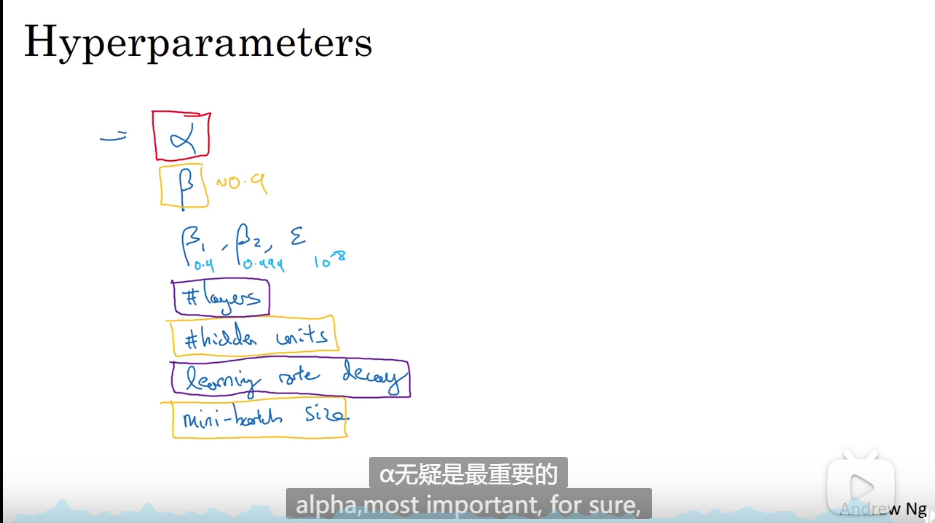 Hyperparameters
= α
β ~0.9
β₁, β₂, ε
0.9 0.999 10⁻⁸
#layers
#hidden units
learning rate decay
mini-batch size
α无疑是最重要的
alpha,most important, for sure,
Andrew Ng